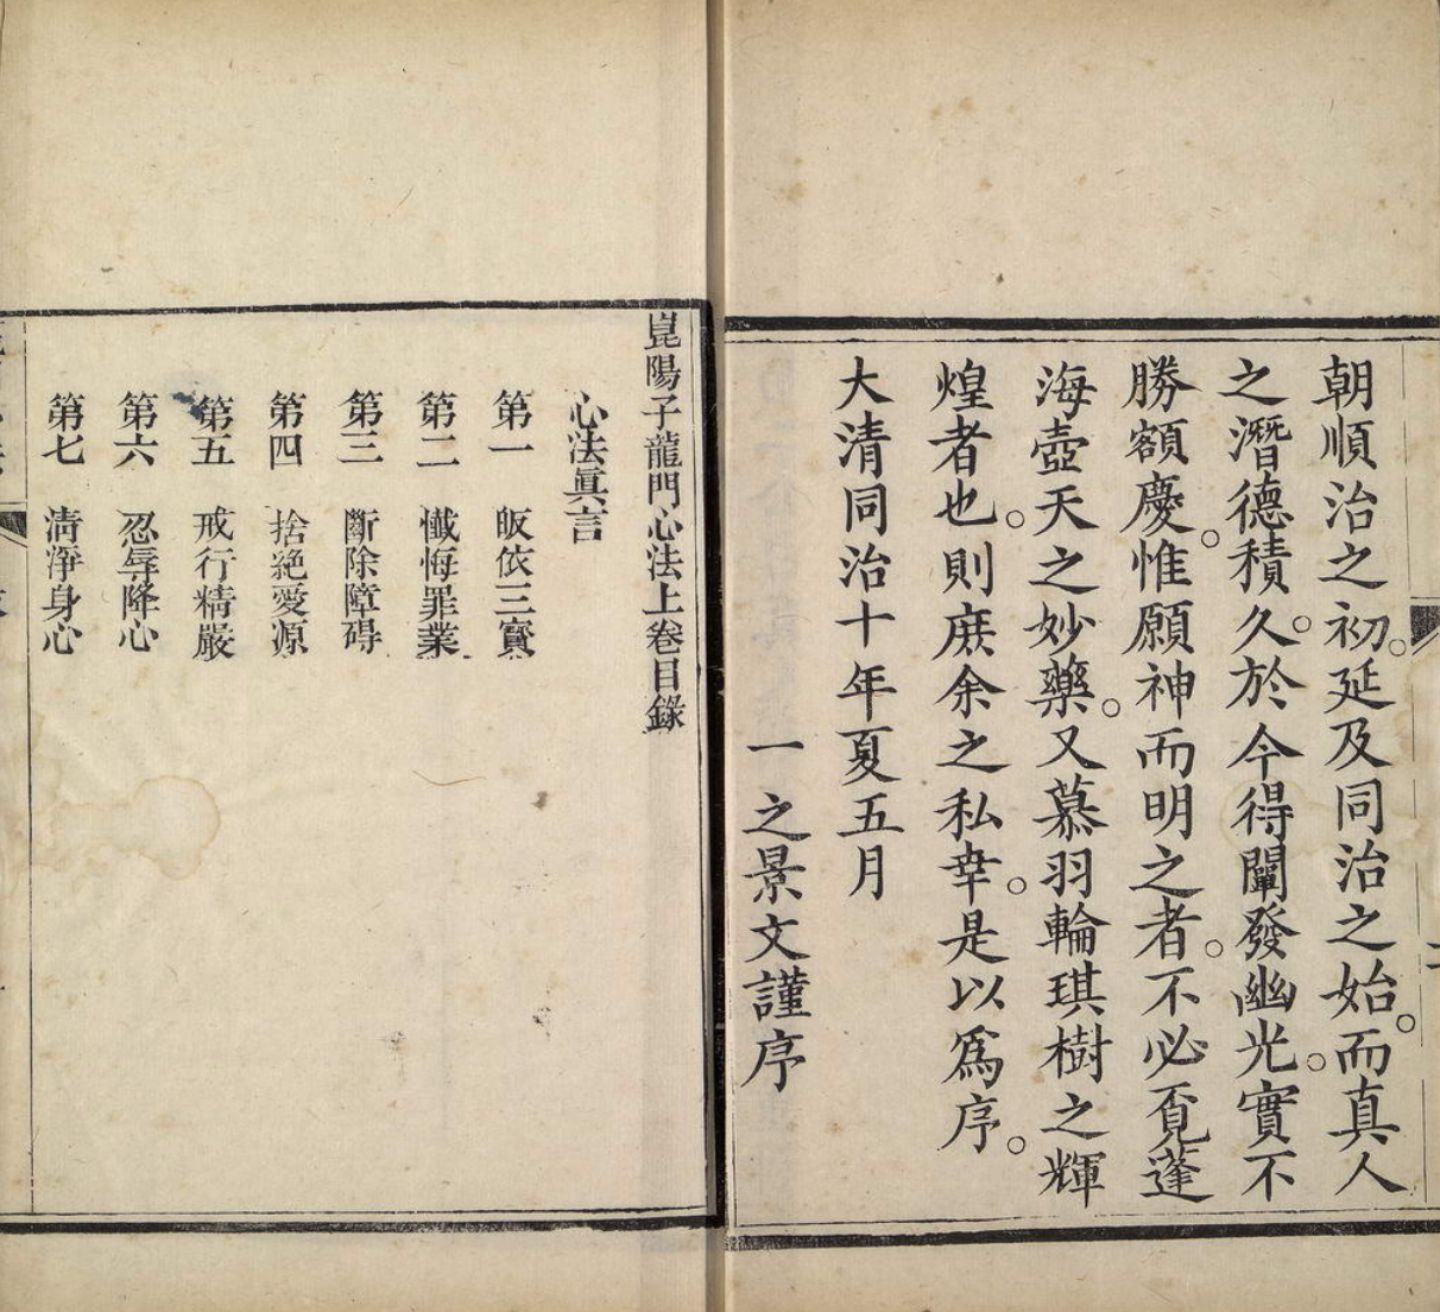 朝順治之初。延及同治之始。而真人
之潛德積久。於今得闡發幽光。實不
勝額慶。惟願神而明之者。不必覓蓬
海壺天之妙藥。又慕羽輪琪樹之輝
煌者也。則庶余之私幸。是以為序。
大清同治十年夏五月
一之景文謹序
崑陽子龍門心法上卷目錄
心法眞言
第一 皈依三寳
第二 懺悔罪業
第三 斷除障碍
第四 捨絕愛源
第五 戒行精嚴
第六 忍辱降心
第七 清淨身心